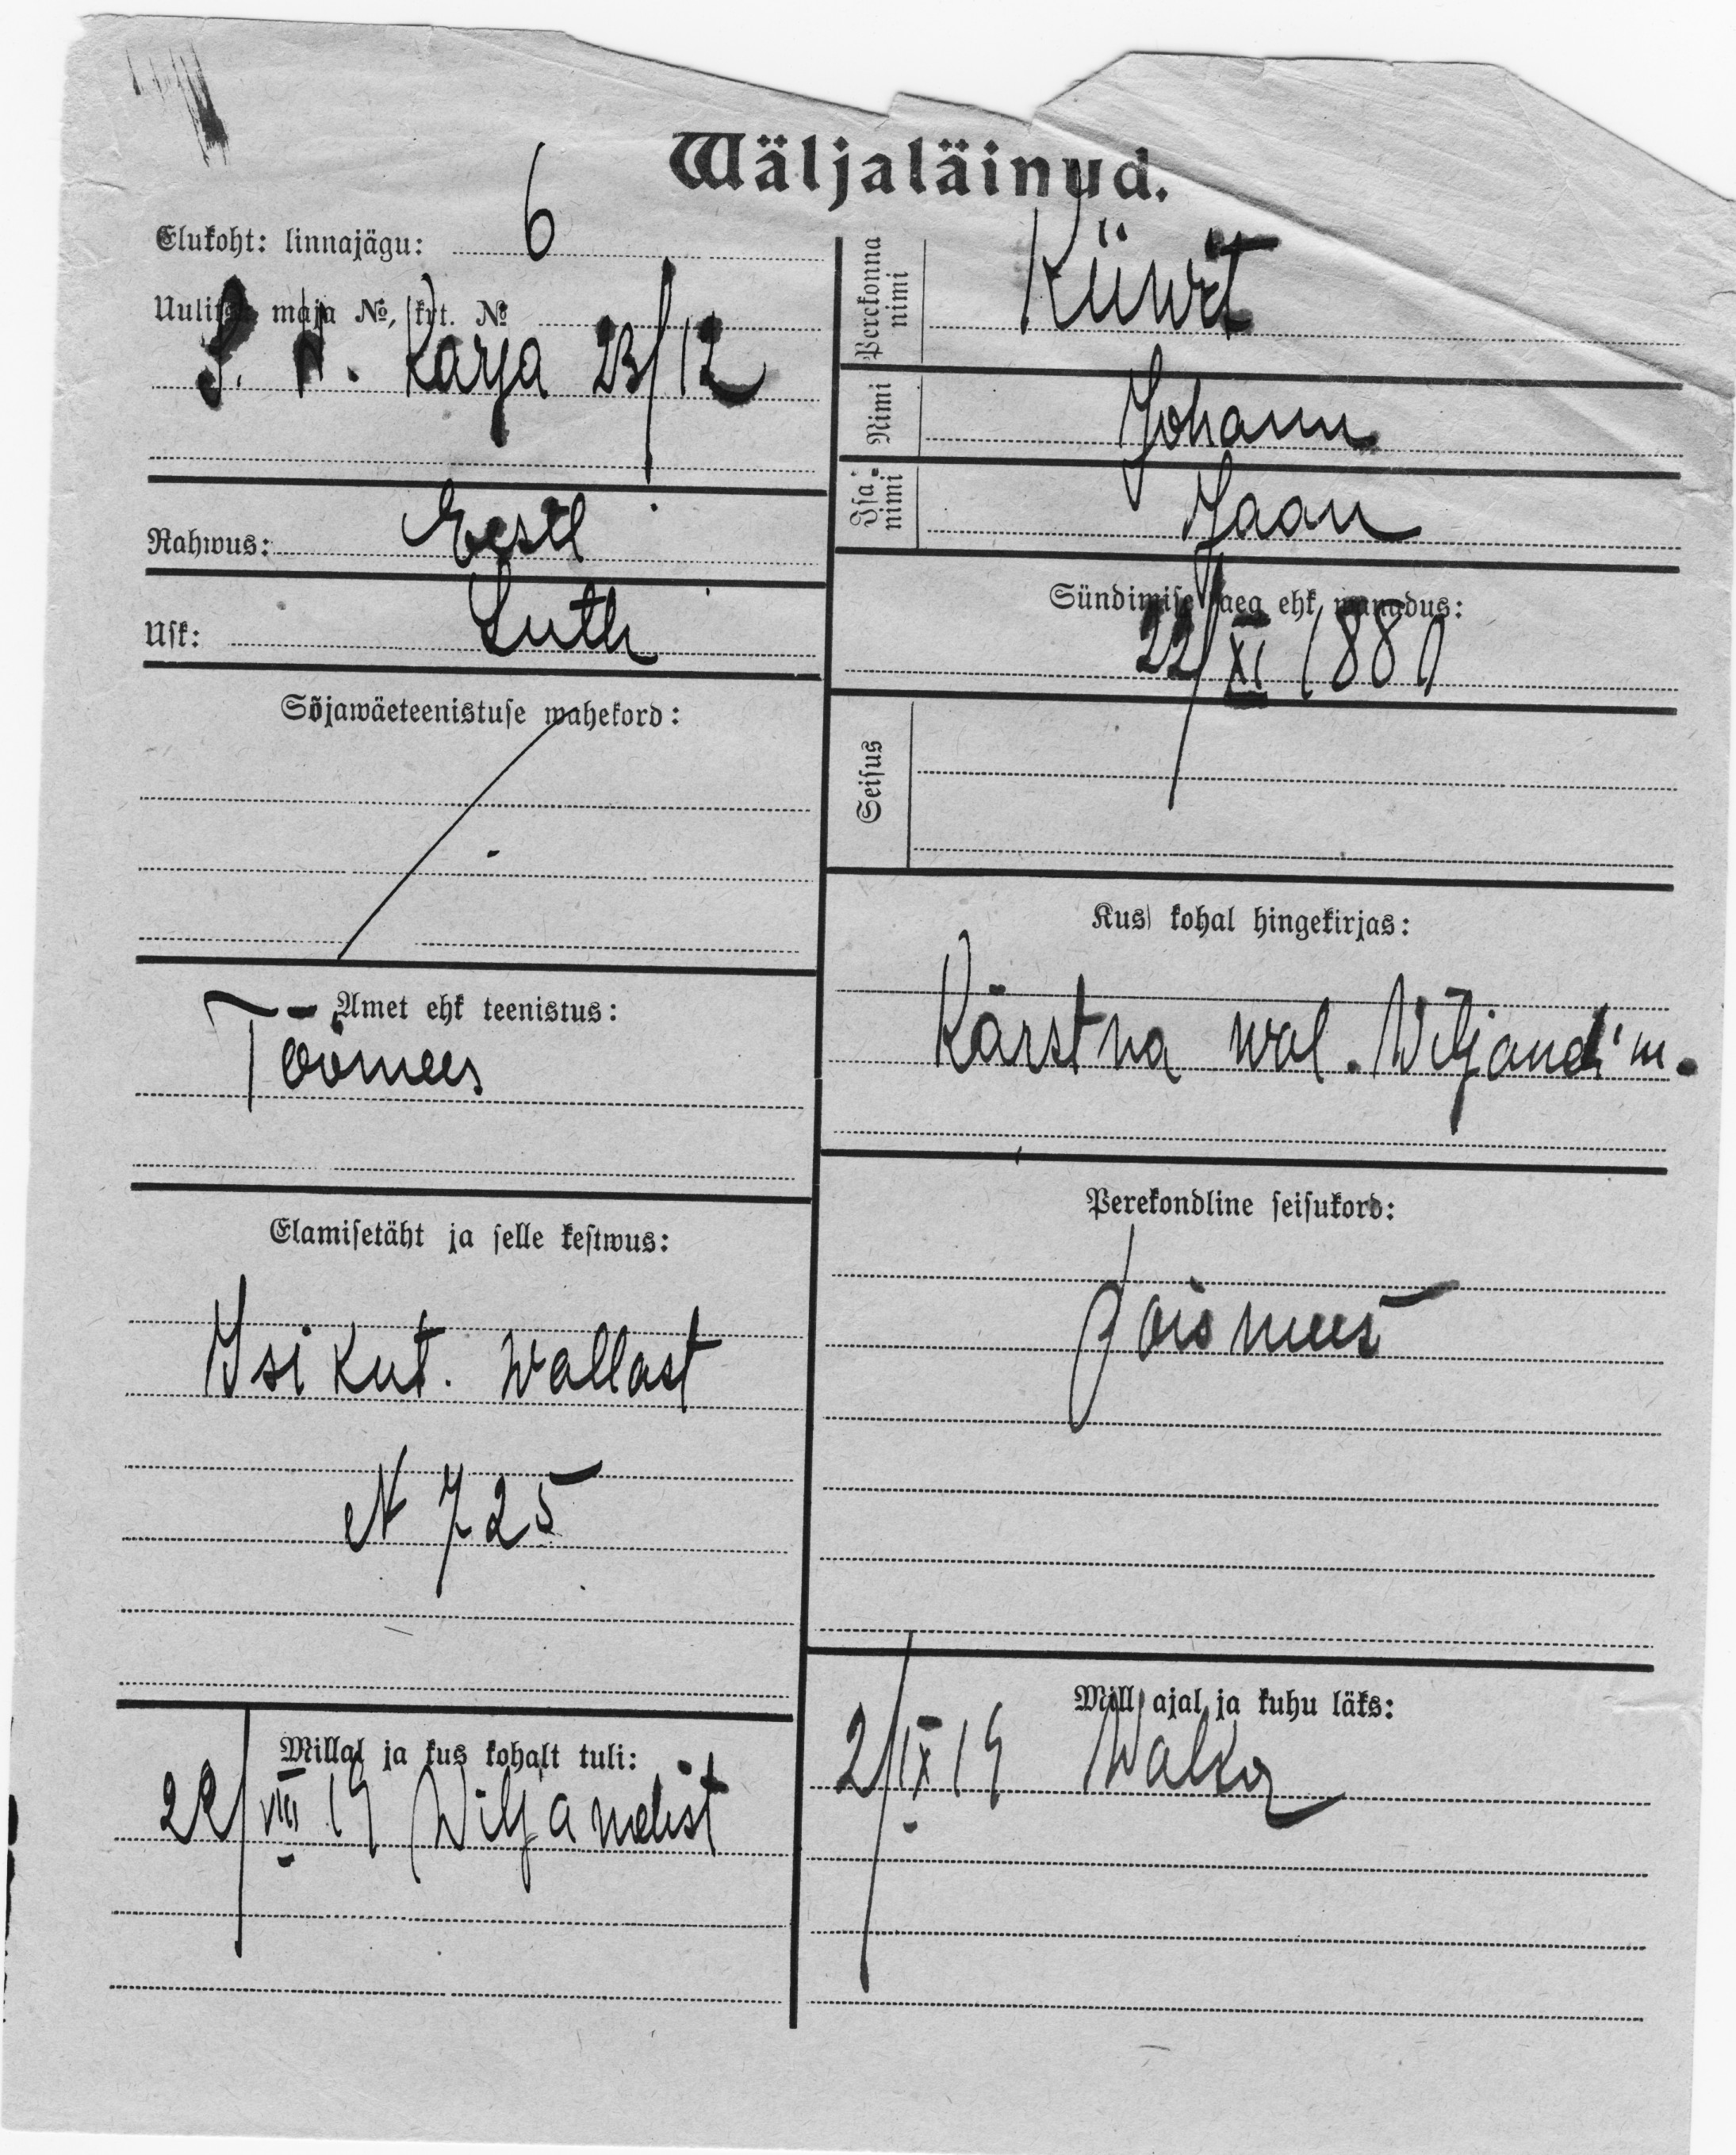 Wäljaläinud.
Elukoht: linnajägu: 6
Uulitsa maja №, krt. №
Karja 23/12
Rahwus: Eesti
Usk: Luth
Sõjawäeteenistuse wahekord:
Amet ehk teenistus:
Töömees
Elamisetäht ja selle kestwus:
Isikut. wallast
N 725
Millal ja kus kohalt tuli:
22/VIII 19 Wiljandist
Perekonna nimi
Nimi Johann
Isa-nimi Jaan
Sündimise aeg ehk wanadus:
22/XI 1880
Seisus
Kus kohal hingekirjas:
Kärstna wal. Wiljandi m.
Perekondline seisukord:
Poismees
Mill ajal ja kuhu läks:
2/IX 19 Walka